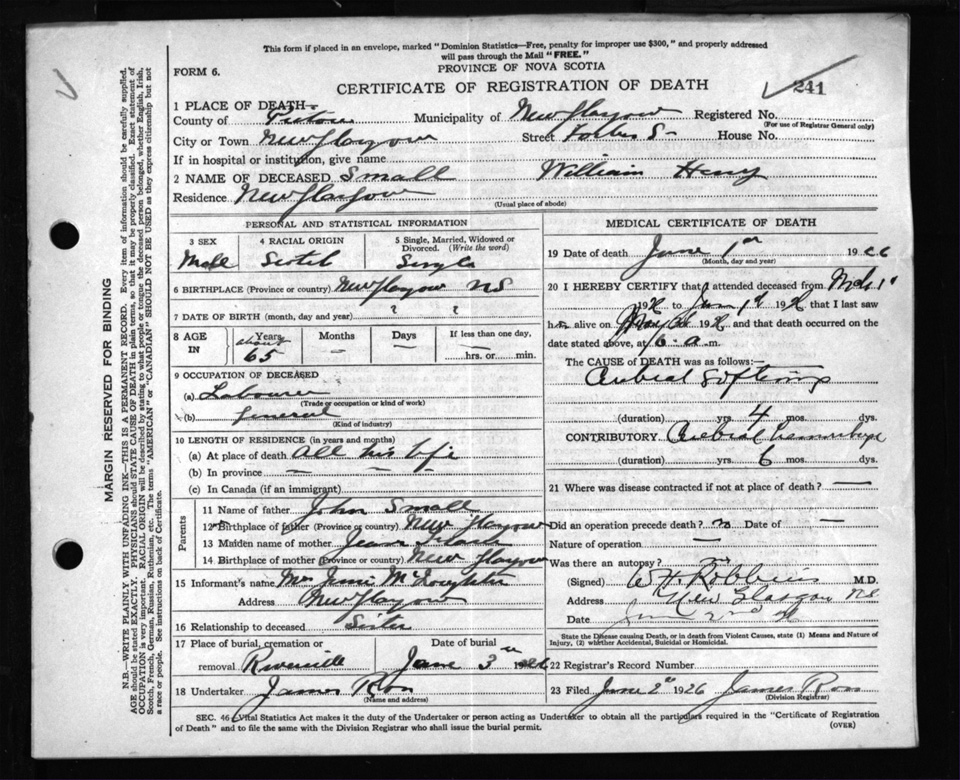 This form if placed in an envelope, marked "Dominion Statistics—Free, penalty for improper use $300," and properly addressed
will pass through the Mail "FREE."
FORM 6.
PROVINCE OF NOVA SCOTIA
CERTIFICATE OF REGISTRATION OF DEATH
241
1 PLACE OF DEATH—
County of Pictou Municipality of New Glasgow Registered No.
(For use of Registrar General only)
City or Town New Glasgow Street Forbes St House No.
If in hospital or institution, give name
2 NAME OF DECEASED Small William Henry
Residence New Glasgow
(Usual place of abode)
PERSONAL AND STATISTICAL INFORMATION
3 SEX 4 RACIAL ORIGIN 5 Single, Married, Widowed or Divorced. (Write the word)
Male Scotch Single
6 BIRTHPLACE (Province or country) New Glasgow NS
7 DATE OF BIRTH (month, day and year) ? ?
8 AGE IN Years Months Days If less than one day,
about 65 — — hrs. or min.
9 OCCUPATION OF DECEASED
(a) Labourer
(Trade or occupation or kind of work)
(b) General
(Kind of industry)
10 LENGTH OF RESIDENCE (in years and months)
(a) At place of death All his life
(b) In province — —
(c) In Canada (if an immigrant)
Parents
11 Name of father John Small
12 Birthplace of father (Province or country) New Glasgow
13 Maiden name of mother Jean
14 Birthplace of mother (Province or country) New Glasgow
15 Informant's name Mrs Jessie
Address New Glasgow
16 Relationship to deceased Sister
17 Place of burial, cremation or removal Riverside Date of burial June 3rd 1926
18 Undertaker James Ross
(Name and address)
MEDICAL CERTIFICATE OF DEATH
19 Date of death June 1st 1926
(Month, day and year)
20 I HEREBY CERTIFY that I attended deceased from Mch 1st
192 to June 1st 192, that I last saw
h alive on May 192 and that death occurred on
date stated above, at 6 a.m.
The CAUSE of DEATH was as follows:—
Cerebral Softening
(duration) yrs. 4 mos. dys.
CONTRIBUTORY Cerebral hemorrhage
(duration) yrs. 6 mos. dys.
21 Where was disease contracted if not at place of death? —
Did an operation precede death? no Date of —
Nature of operation —
Was there an autopsy? no
(Signed) W H Robbins M.D.
Address New Glasgow NS
Date June 2nd 26
State the Disease causing Death, or in death from Violent Causes, state (1) Means and Nature of
Injury, (2) whether Accidental, Suicidal or Homicidal.
22 Registrar's Record Number
23 Filed June 2nd 1926 James Ross
(Division Registrar)
SEC. 46 Vital Statistics Act makes it the duty of the Undertaker or person acting as Undertaker to obtain all the particulars required in the "Certificate of Registration
of Death" and to file the same with the Division Registrar who shall issue the burial permit.
(OVER)
MARGIN RESERVED FOR BINDING
N.B.—WRITE PLAINLY WITH UNFADING INK—THIS IS A PERMANENT RECORD. Every item of information should be carefully supplied.
AGE should be stated EXACTLY. PHYSICIANS should STATE CAUSE OF DEATH in plain terms, so that it may be properly classified. Exact statement of
OCCUPATION is very important. RACIAL ORIGIN will be described by stating to what people or tongue the deceased person belonged, whether English, Irish,
Scotch, French, German, Russian, Ruthenian, etc. The terms "AMERICAN" or "CANADIAN" SHOULD NOT BE USED as they express citizenship but not
a race or people. See instructions on back of Certificate.